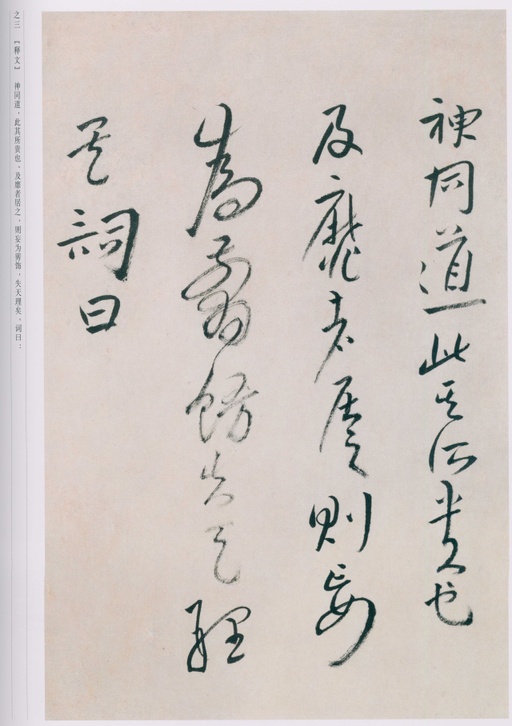 神同道此其所貴也
及靡者居之則妄
為翦飾失天理
矣詞曰
之三 【释文】 神同道，此其所贵也，及靡者居之，则妄为翦饰，失天理矣，词曰：